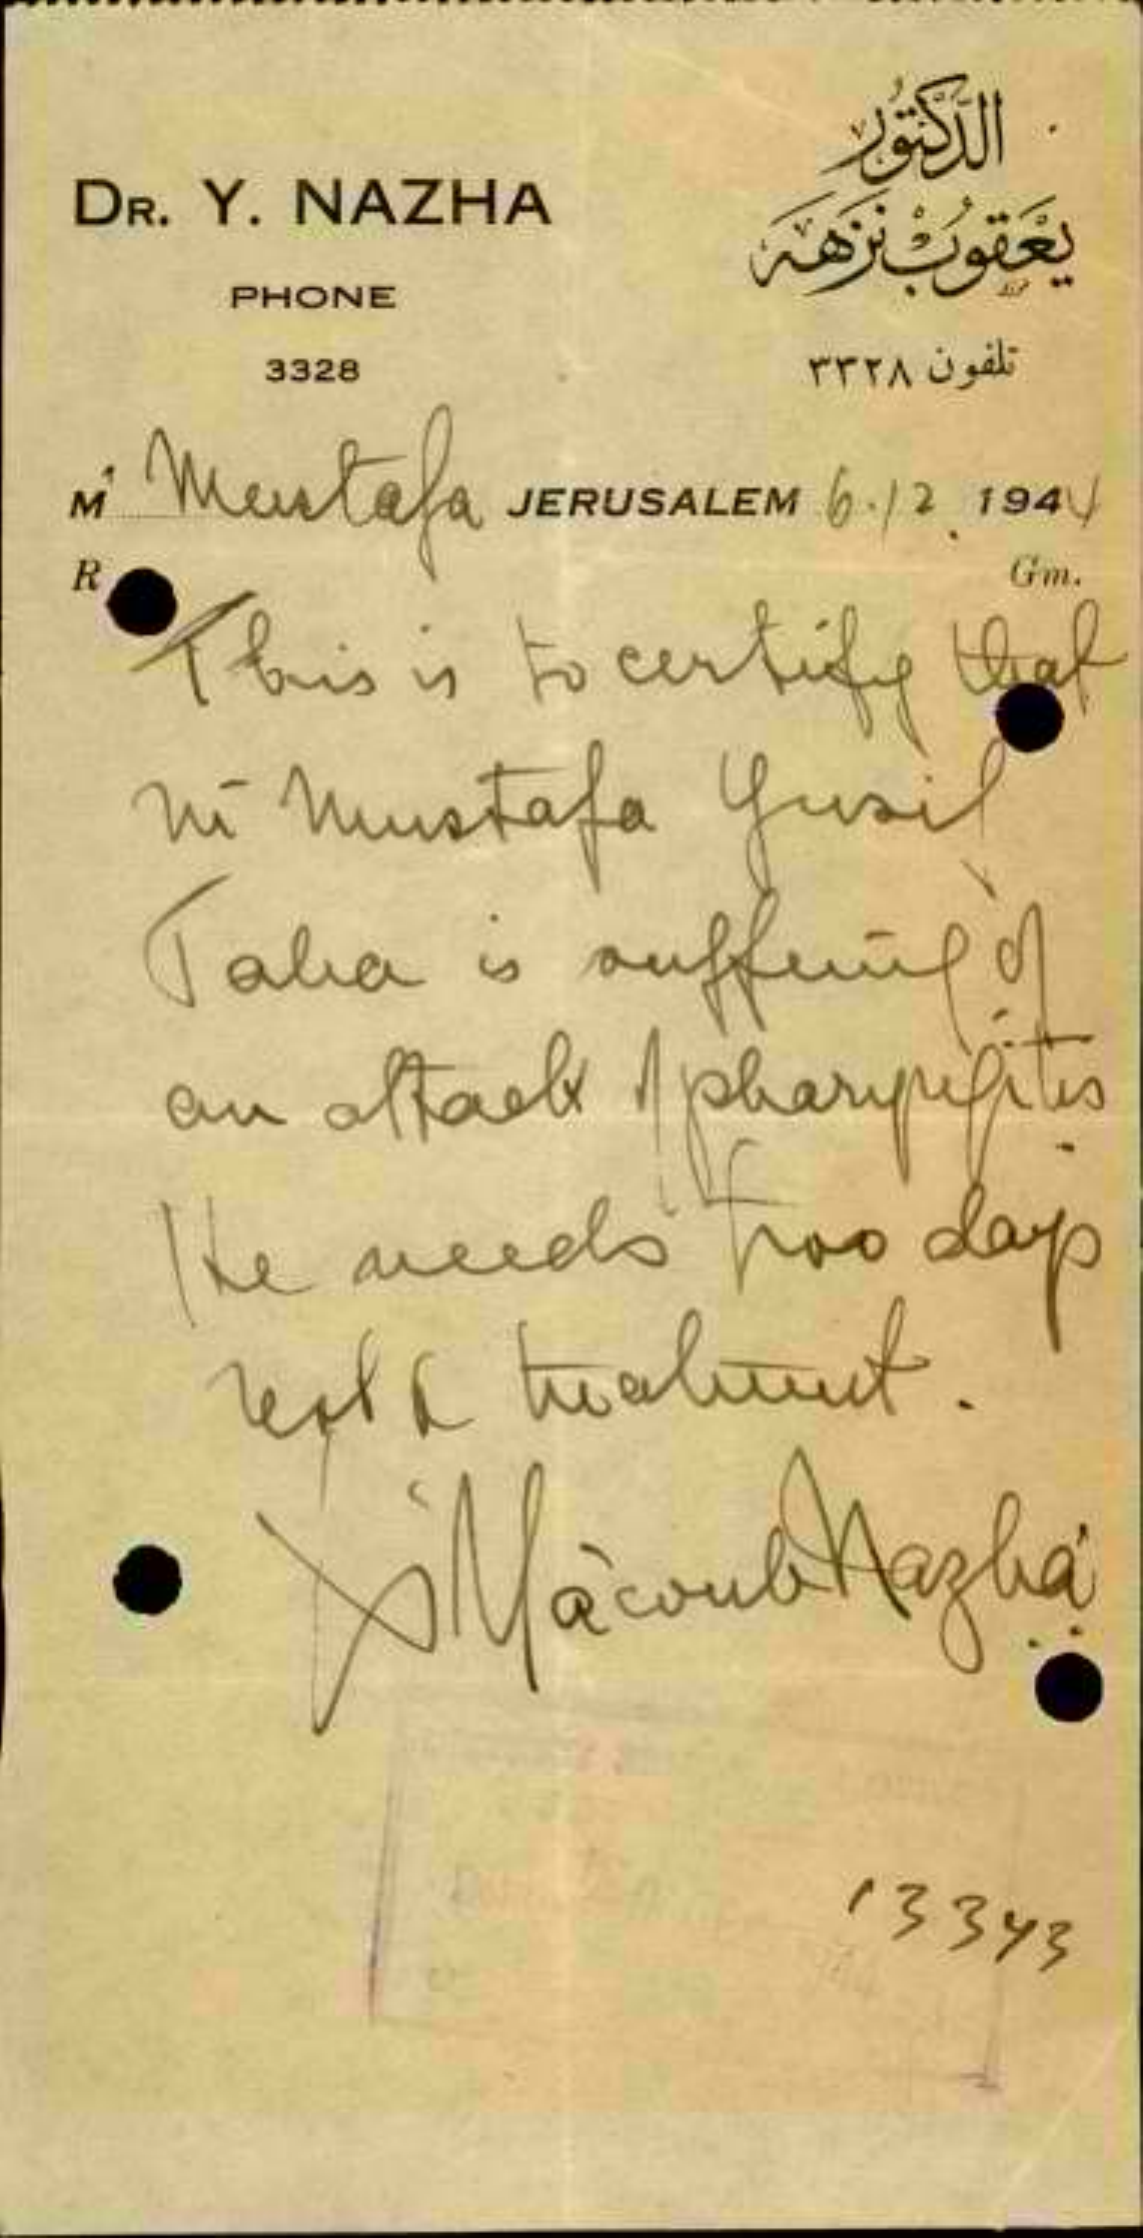 DR. Y. NAZHA
PHONE
3328
الدَّكْتُور
يَعْقُوبْ نَزْهَه
تلفون ٣٣٢٨
M Mustafa JERUSALEM 6.12.1944
R Gm.
This is to certify that
Mr Mustafa Yusif
Taha is suffering of
an attack of pharyngitis
He needs two days
rest & treatment.
Yacoub Nazha
13343